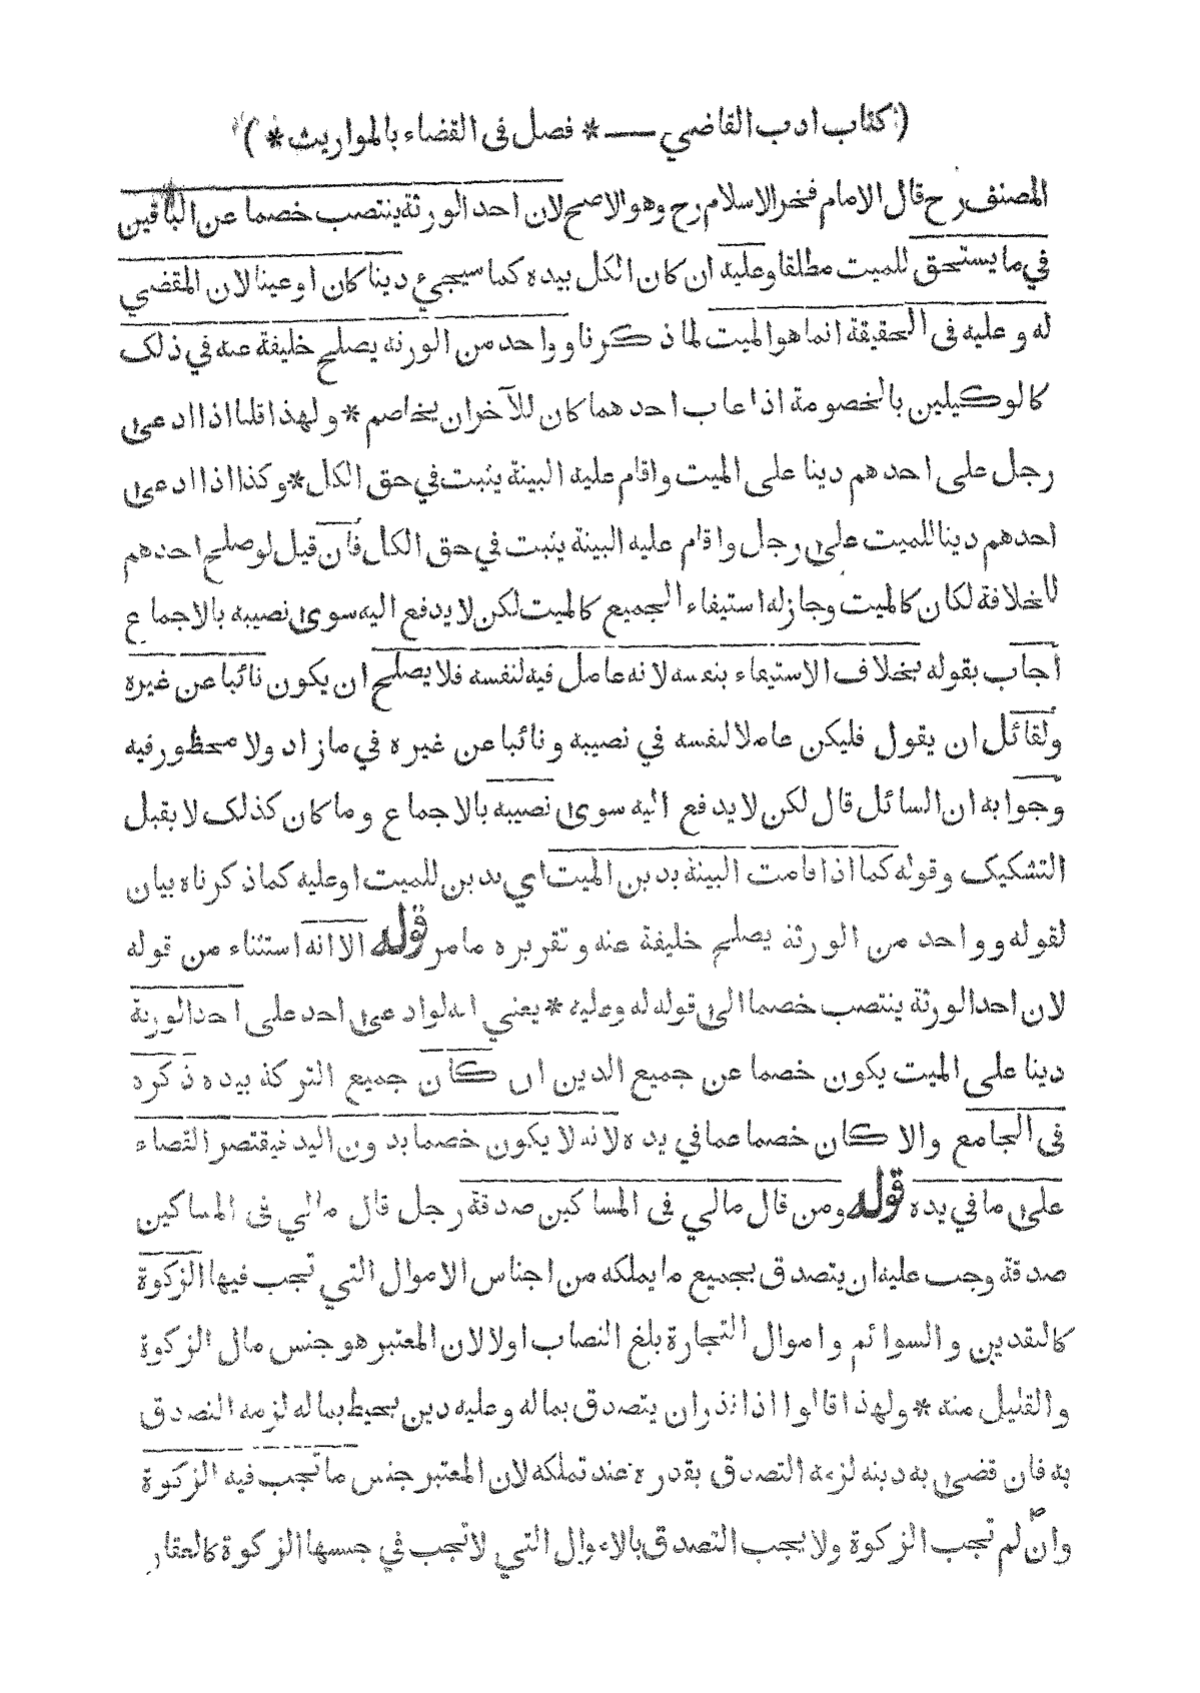 (كتاب ادب القاضي — * فصل فى القضاء بالمواريث *)
المصنف رح قال الامام فخر الاسلام رح وهو الاصح لان احد الورثة ينتصب خصما عن الباقين
في ما يستحق للميت مطلقا وعليه ان كان الكل بيده كما سيجيء دينا كان او عينا لان المقضي
له وعليه فى الحقيقة انما هو الميت لما ذكرنا وواحد من الورثة يصلح خليفة عنه في ذلك
كالوكيلين بالخصومة اذا غاب احدهما كان للآخر ان يخاصم * ولهذا قلنا اذا ادعى
رجل على احدهم دينا على الميت واقام عليه البينة يثبت في حق الكل * وكذا اذا ادعى
احدهم دينا للميت على رجل واقام عليه البينة يثبت في حق الكل فأن قيل لو صلح احدهم
للخلافة لكان كالميت وجاز له استيفاء الجميع كالميت لكن لا يدفع اليه سوى نصيبه بالاجماع
أجاب بقوله بخلاف الاستيفاء بنفسه لانه عامل فيه لنفسه فلا يصلح ان يكون نائبا عن غيره
ولقائل ان يقول فليكن عاملا لنفسه في نصيبه ونائبا عن غيره في ما زاد ولا محظور فيه
وجوابه ان السائل قال لكن لا يدفع اليه سوى نصيبه بالاجماع وما كان كذلك لا يقبل
التشكيك وقوله كما اذا قامت البينة بدين الميت اي بدين للميت او عليه كما ذكرناه بيان
لقوله وواحد من الورثة يصلح خليفة عنه وتقريره ما مر قوله الا انه استثناء من قوله
لان احد الورثة ينتصب خصما الى قوله له وعليه * يعني انه لو ادعى احد على احد الورثة
دينا على الميت يكون خصما عن جميع الدين ان كان جميع التركة بيده ذكره
فى الجامع والا كان خصما عما في يده لانه لا يكون خصما بدون اليد فيقتصر القضاء
على ما في يده قوله ومن قال مالي فى المساكين صدقة رجل قال مالي فى المساكين
صدقة وجب عليه ان يتصدق بجميع ما يملكه من اجناس الاموال التي تجب فيها الزكوة
كالنقدين والسوائم واموال التجارة بلغ النصاب اولا لان المعتبر هو جنس مال الزكوة
والقليل منه * ولهذا قالوا اذا نذر ان يتصدق بماله وعليه دين يحيط بماله لزمه التصدق
به فان قضى به دينه لزمه التصدق بقدره عند تملكه لان المعتبر جنس ما تجب فيه الزكوة
وان لم تجب الزكوة ولا يجب التصدق بالاموال التي لا تجب في جنسها الزكوة كالعقار